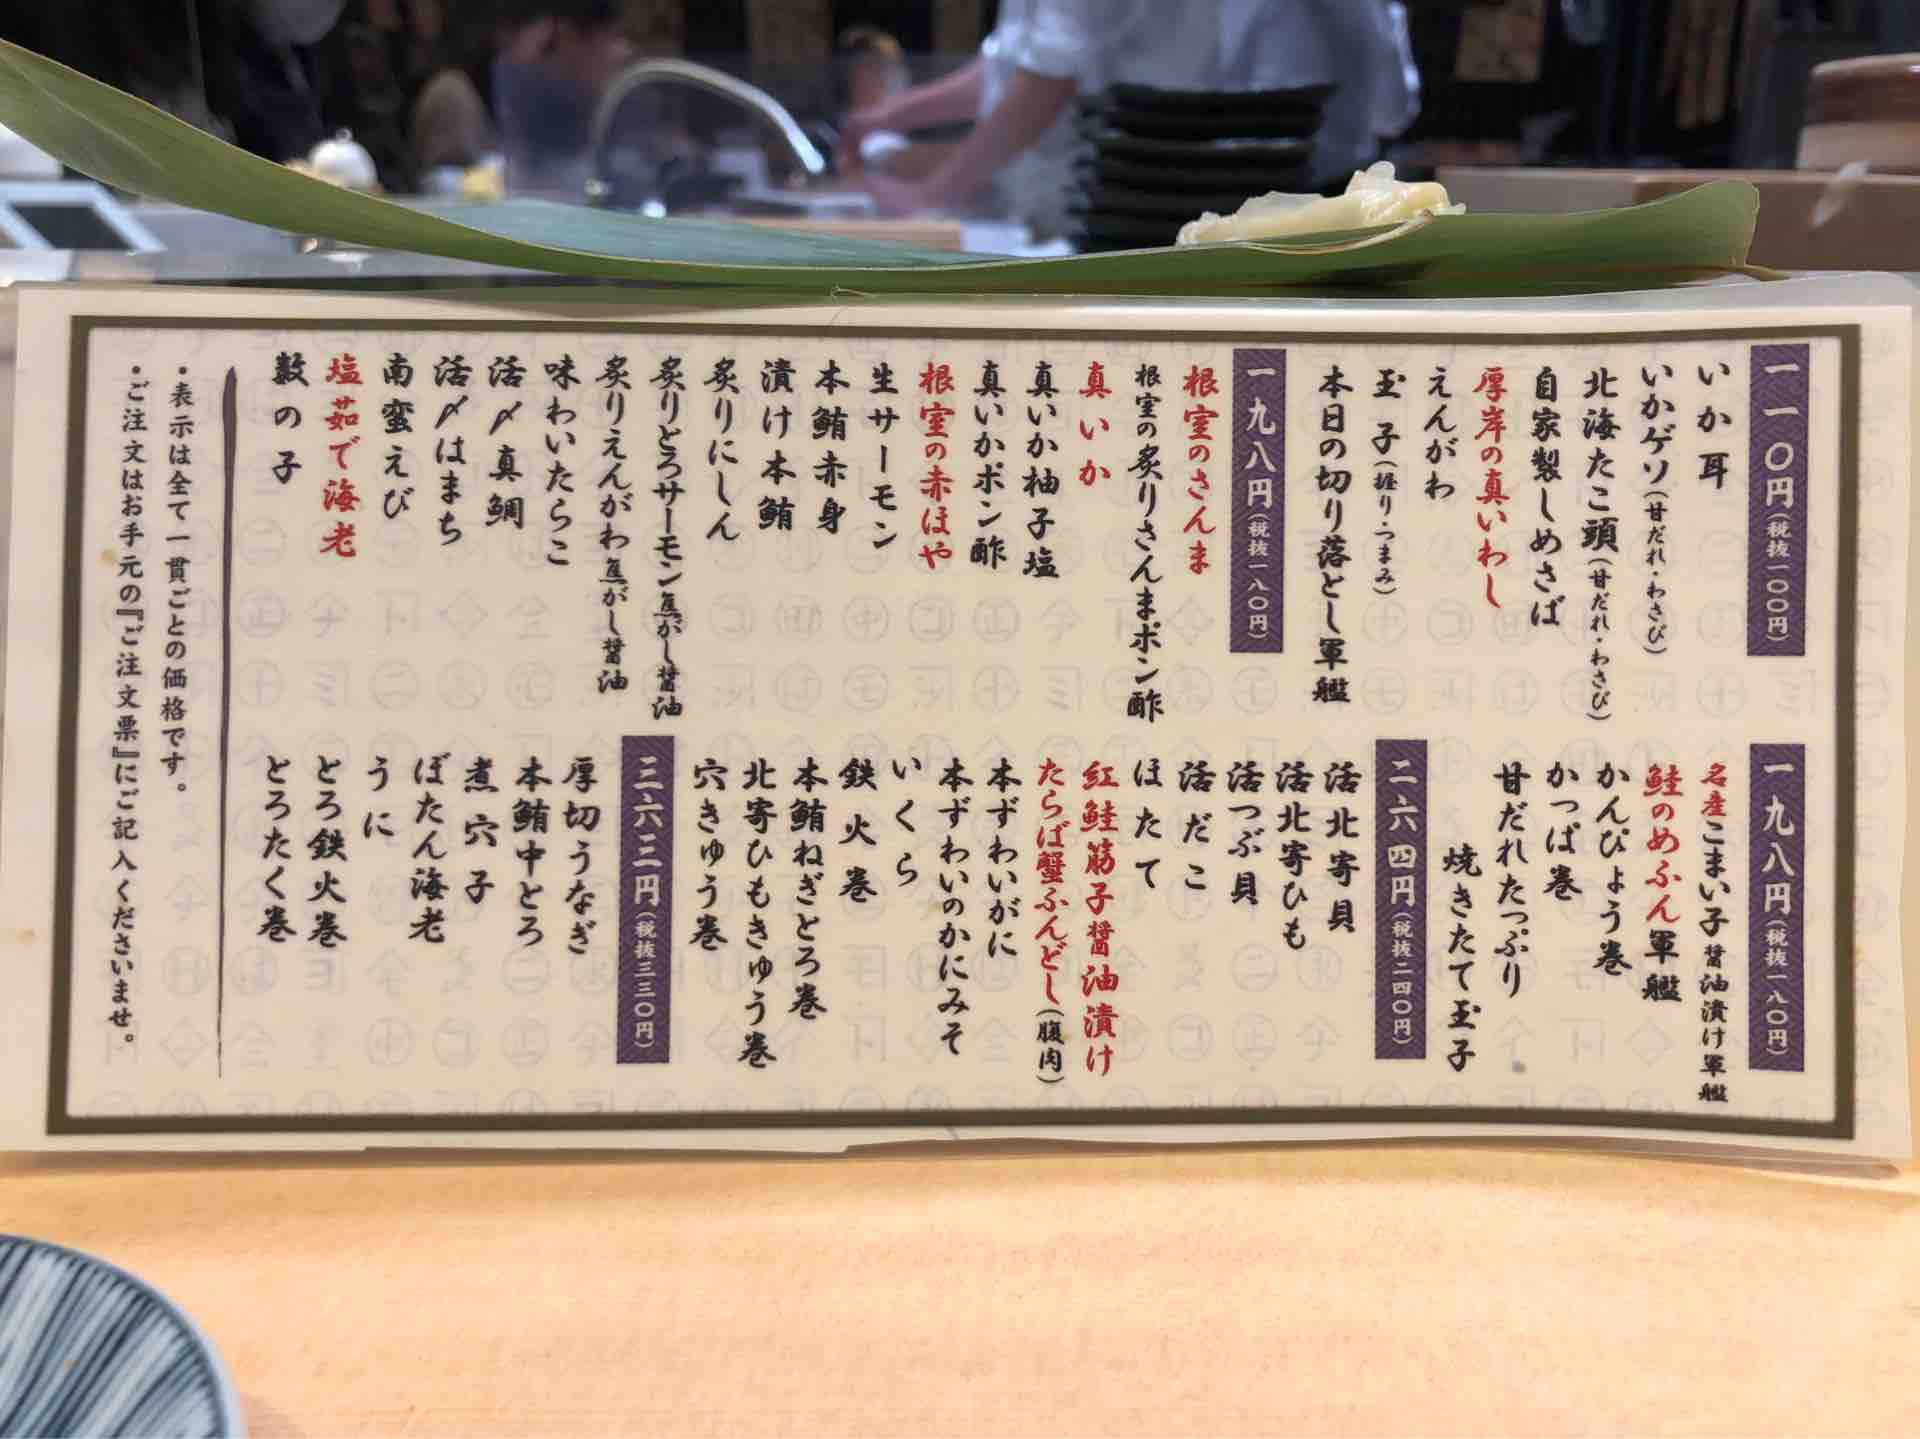 一一〇円(税抜一〇〇円)
いか耳
いかゲソ(甘だれ・わさび)
北海たこ頭(甘だれ・わさび)
自家製しめさば
厚岸の真いわし
えんがわ
玉子(握り・つまみ)
本日の切り落とし軍艦
一九八円(税抜一八〇円)
根室のさんま
根室の炙りさんまポン酢
真いか
真いか柚子塩
真いかポン酢
根室の赤ほや
生サーモン
本鮪赤身
漬け本鮪
炙りにしん
炙りとろサーモン焦がし醤油
炙りえんがわ焦がし醤油
味わいたらこ
活〆真鯛
活〆はまち
南蛮えび
塩茹で海老
数の子
一九八円(税抜一八〇円)
名産こまい子醤油漬け軍艦
鮭のめふん軍艦
かんぴょう巻
かっぱ巻
甘だれたっぷり
焼きたて玉子
二六四円(税抜二四〇円)
活北寄貝
活北寄ひも
活つぶ貝
活だこ
ほたて
紅鮭筋子醤油漬け
たらば蟹ふんどし(腹肉)
本ずわいがに
本ずわいのかにみそ
いくら
鉄火巻
本鮪ねぎとろ巻
北寄ひもきゅう巻
穴きゅう巻
三六三円(税抜三三〇円)
厚切うなぎ
本鮪中とろ
煮穴子
ぼたん海老
うに
とろ鉄火巻
とろたく巻
・表示は全て一貫ごとの価格です。
・ご注文はお手元の『ご注文票』にご記入くださいませ。